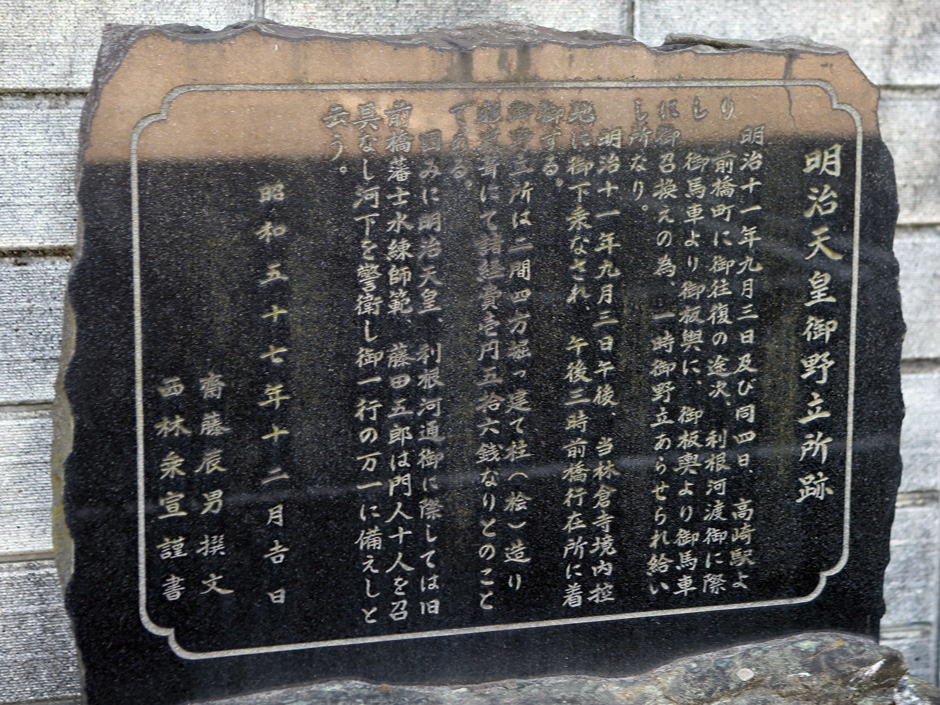 明治天皇御野立所跡
明治十一年九月三日及び同四日、高崎駅よ
り前橋町に御往復の途次、利根河渡御に際
し御馬車より御板輿に、御板輿より御馬車
に御召換えの為、一時御野立あらせられ給い
し所なり。
明治十一年九月三日午後、当林倉寺境内控
所に御下乗なされ、午後三時前橋行在所に着
御する。
御野立所は二間四方掘っ建て柱(桧)造り
萱葺にて諸経費壱円五拾六銭なりとのこと
である。
因みに明治天皇、利根河通御に際しては旧
前橋藩士水練師範、藤田五郎は門人十人を召
具なし河下を警衛し御一行の万一に備えしと
云う。
昭和五十七年十二月吉日
齋藤辰男撰文
西林乗宣謹書